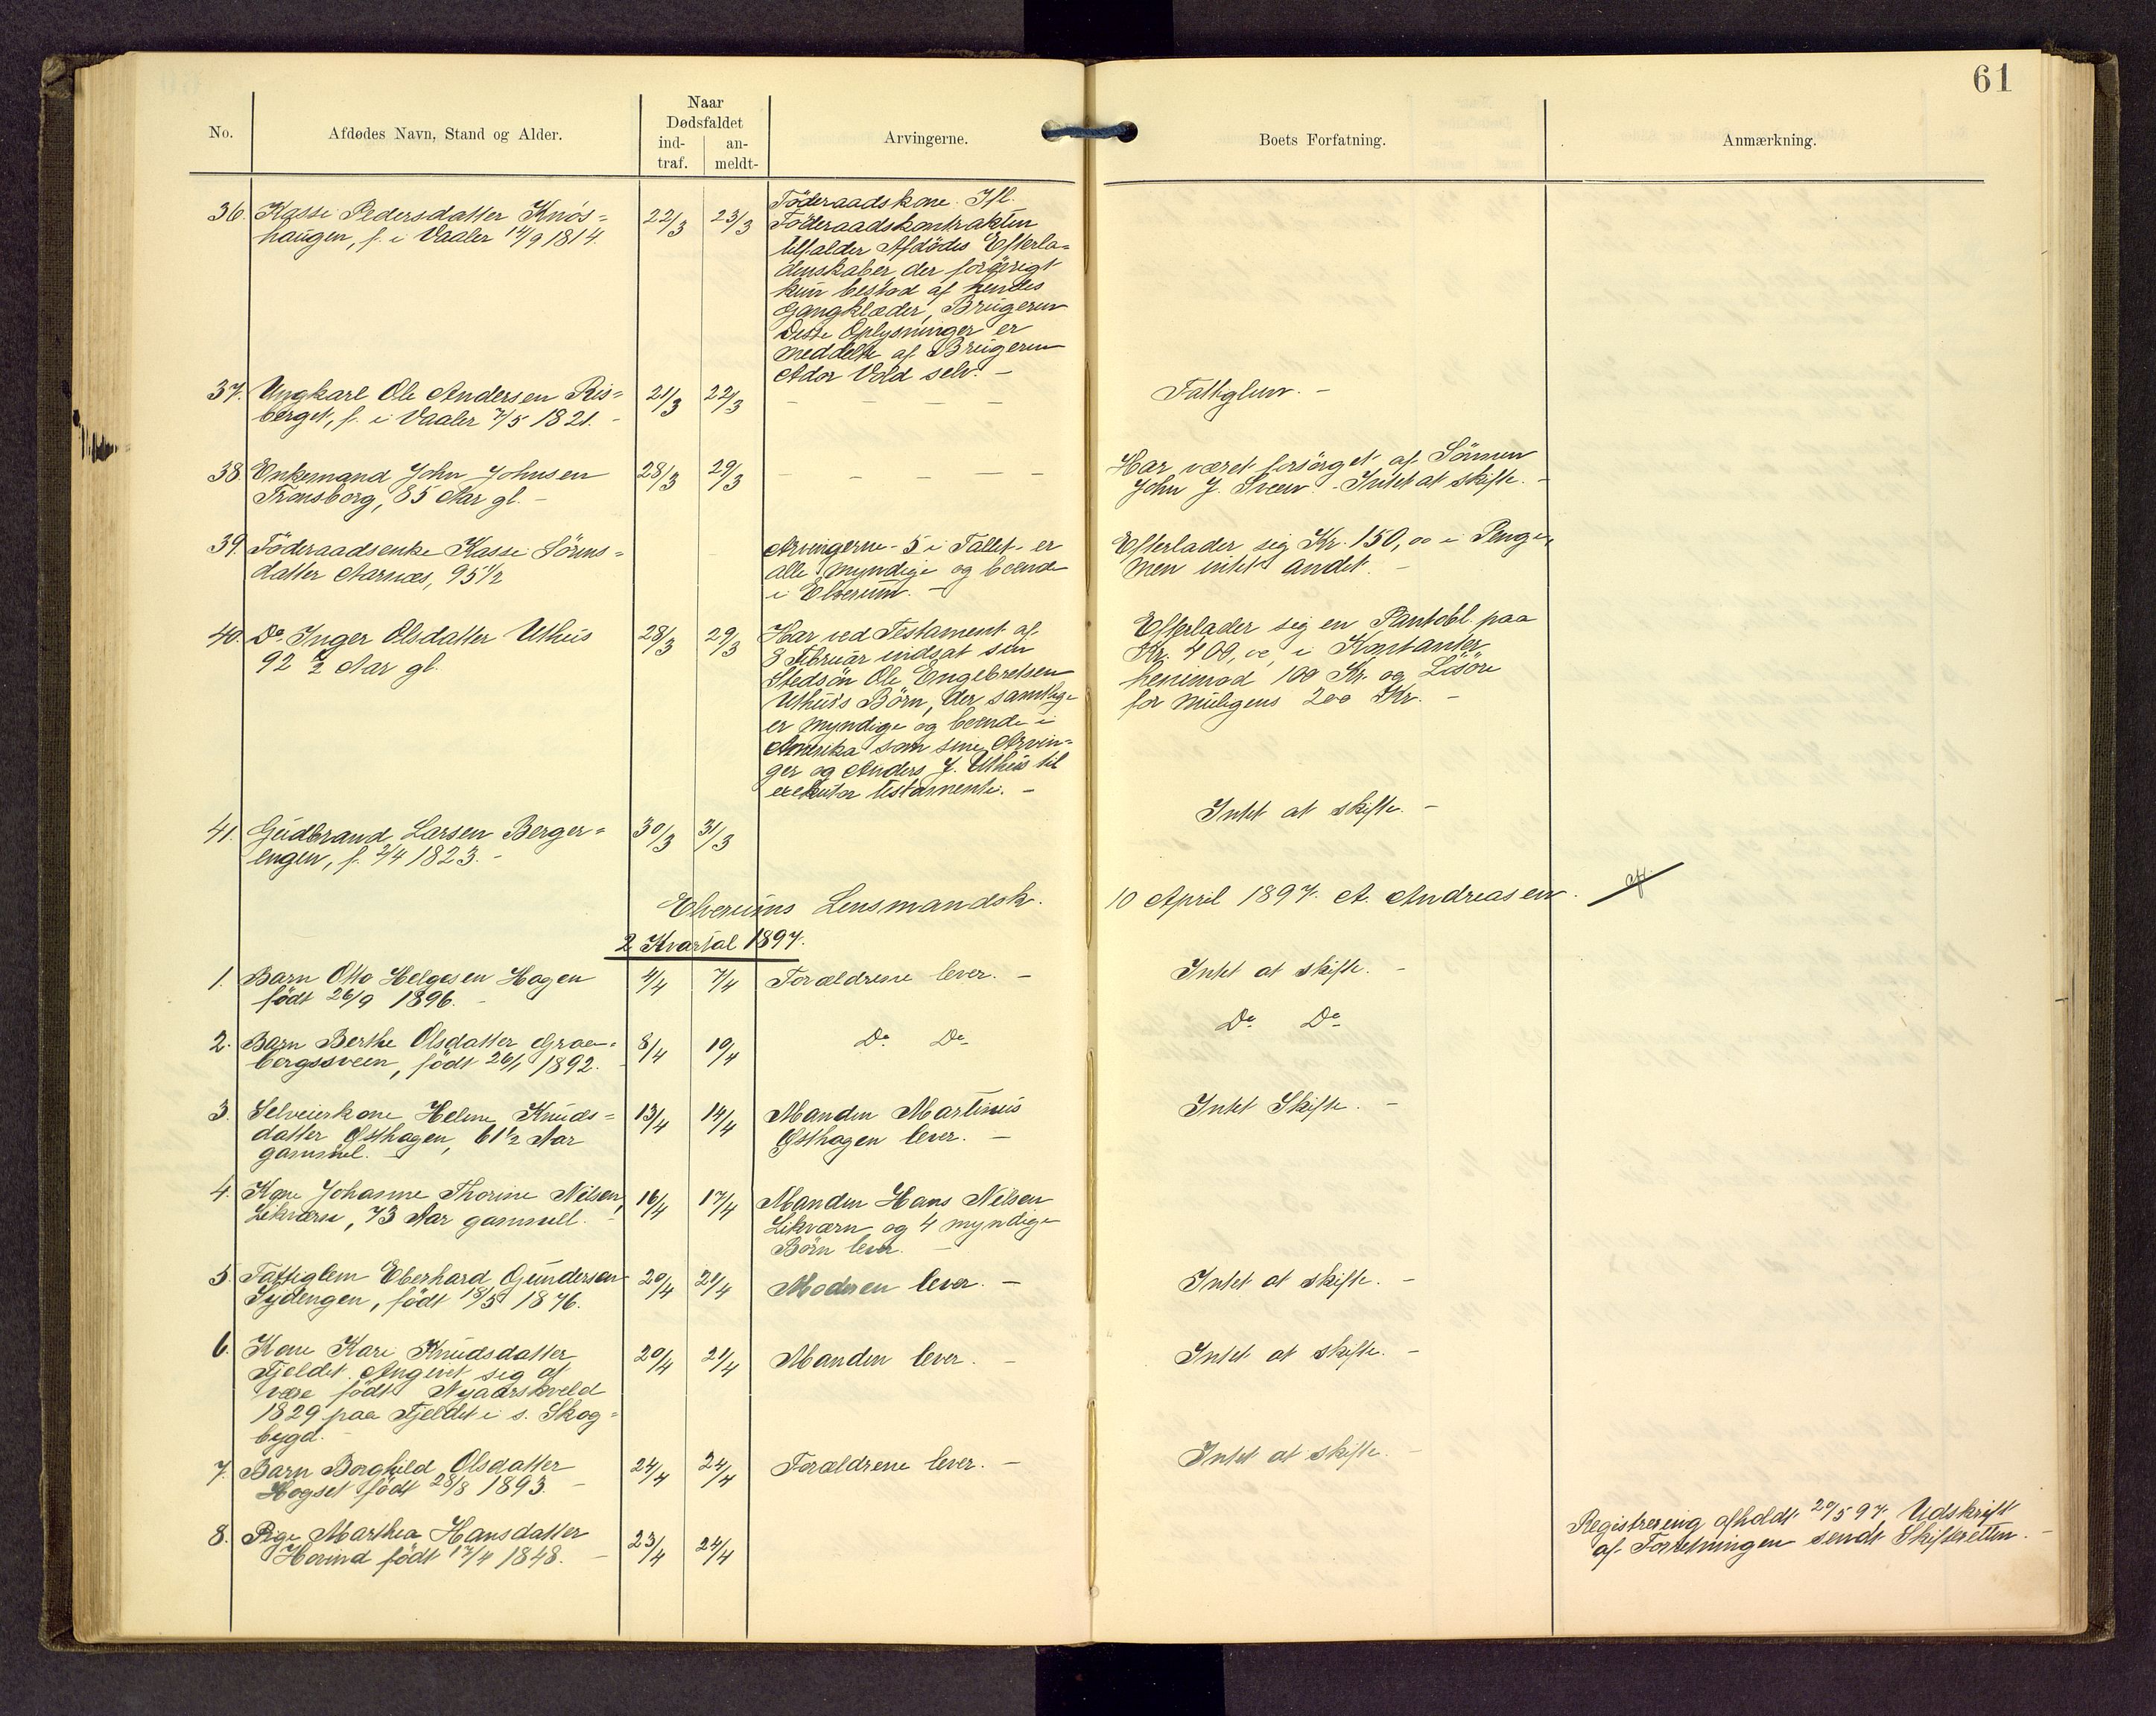 61
No.
Afdødes Navn, Stand og Alder.
Naar
Dødsfaldet
ind-
traf.
an-
meldt-
Arvingerne.
Boets Forfatning.
Anmærkning.
36. Kasse Pedersdatter Knös=
haugen, f. i Vaaler 14/9 1814.
22/3 23/3
Föderaadskone. Ifl.
Föderaadskontrakten
tilfalder Afdödes Efterla=
denskaber, der forövrigt
kun bestod af hendes
Gangklæder, Brugeren
Disse Oplysninger er
meddelte af Brugeren
Ador Vold selv. -
37. Ungkarl Ole Andersen Ris=
berget, f. i Vaaler 7/5 1821. -
21/3 22/3 - - - -
Fattiglem. -
38. Enkemand John Johnsen
Tronsberg, 85 Aar gl. -
28/3 29/3 - - - -
Har været forsörget af Sönnen
John J. Sveen. - Intet at skifte. -
39. Föderaadsenke Kasse Sörens=
datter Aarnæs, 95 1/2
Arvingerne - 5 i Tallet - er
alle myndige og boende
i Elverum. -
Efterlader sig Kr. 150,00 i Penge,
men intet andet. -
40. Do. Inger Olsdatter Uthus
92 1/2 Aar gl.
28/3 29/3
Har ved Testament af
8 Februar indsat sin
Stedsön Ole Engebretsen
Uthus's Börn, der samtlige
er myndige og boende i
Amerika som sine Arvin=
ger og Anders J. Uthus til
executor testamenti. -
Efterlader sig en Pantobl. paa
Kr. 400,00, i Kontanter
henimod 100 Kr. og Lösöre
for muligens 200 Kr. -
41. Gudbrand Larsen Berger=
engen, f. 2/4 1823. -
30/3 31/3
Intet at skifte. -
Elverums Lensmandsk. 10 April 1897. A. Andreasen.
2 Kvartal 1897.
1. Barn Otto Helgesen Hagen
födt 26/9 1896. -
4/4 7/4 Forældrene lever. -
Intet at skifte. -
2. Barn Berthe Olsdatter Graa=
bergssveen, födt 26/1 1892. -
8/4 10/4 Do. Do.
Do. Do.
3. Selveierkone Helene Knuds=
datter Østhagen, 61 1/2 Aar
gammel. -
13/4 14/4 Manden Martinus
Østhagen lever. -
Intet Skifte. -
4. Kone Johanne Thorine Nilsen,
Likværn, 73 Aar gammel. -
16/4 17/4 Manden Hans Nilsen
Likværn og 4 myndige
Börn lever. -
5. Fattiglem Eberhard Gundersen
Sydengen, födt 18/5 1876.
20/4 21/4 Moderen lever. -
Intet at skifte. -
6. Kone Kari Knudsdatter
Fjeldet. Angivet sig at
være födt Nyaarskveld
1829 paa Fjeldet i s. Skog=
bygd. -
20/4 21/4 Manden lever. -
Intet at skifte. -
7. Barn Borghild Olsdatter
Hogset födt 28/8 1893. -
24/4 24/4 Forældrene lever. -
Intet at skifte. -
8. Pige Marthea Hansdatter
födt 17/4 1848. -
23/4 24/4
Registrering afholdt 20/5 97. Udskrift
af Forretningen sendt Skifteretten. -